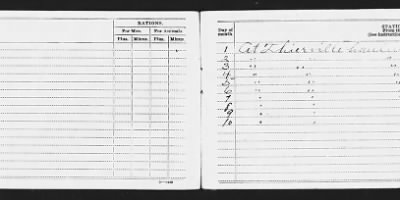 RATIONS.
For Men. For Animals
Plus. Minus. Plus. Minus.
Day of month
STATI
From th
(See Instruction
1 At Thierville
2 " "
3 " " "
4 " "
5 " " "
6 " "
7 " "
8 " "
9 " "
10 " "